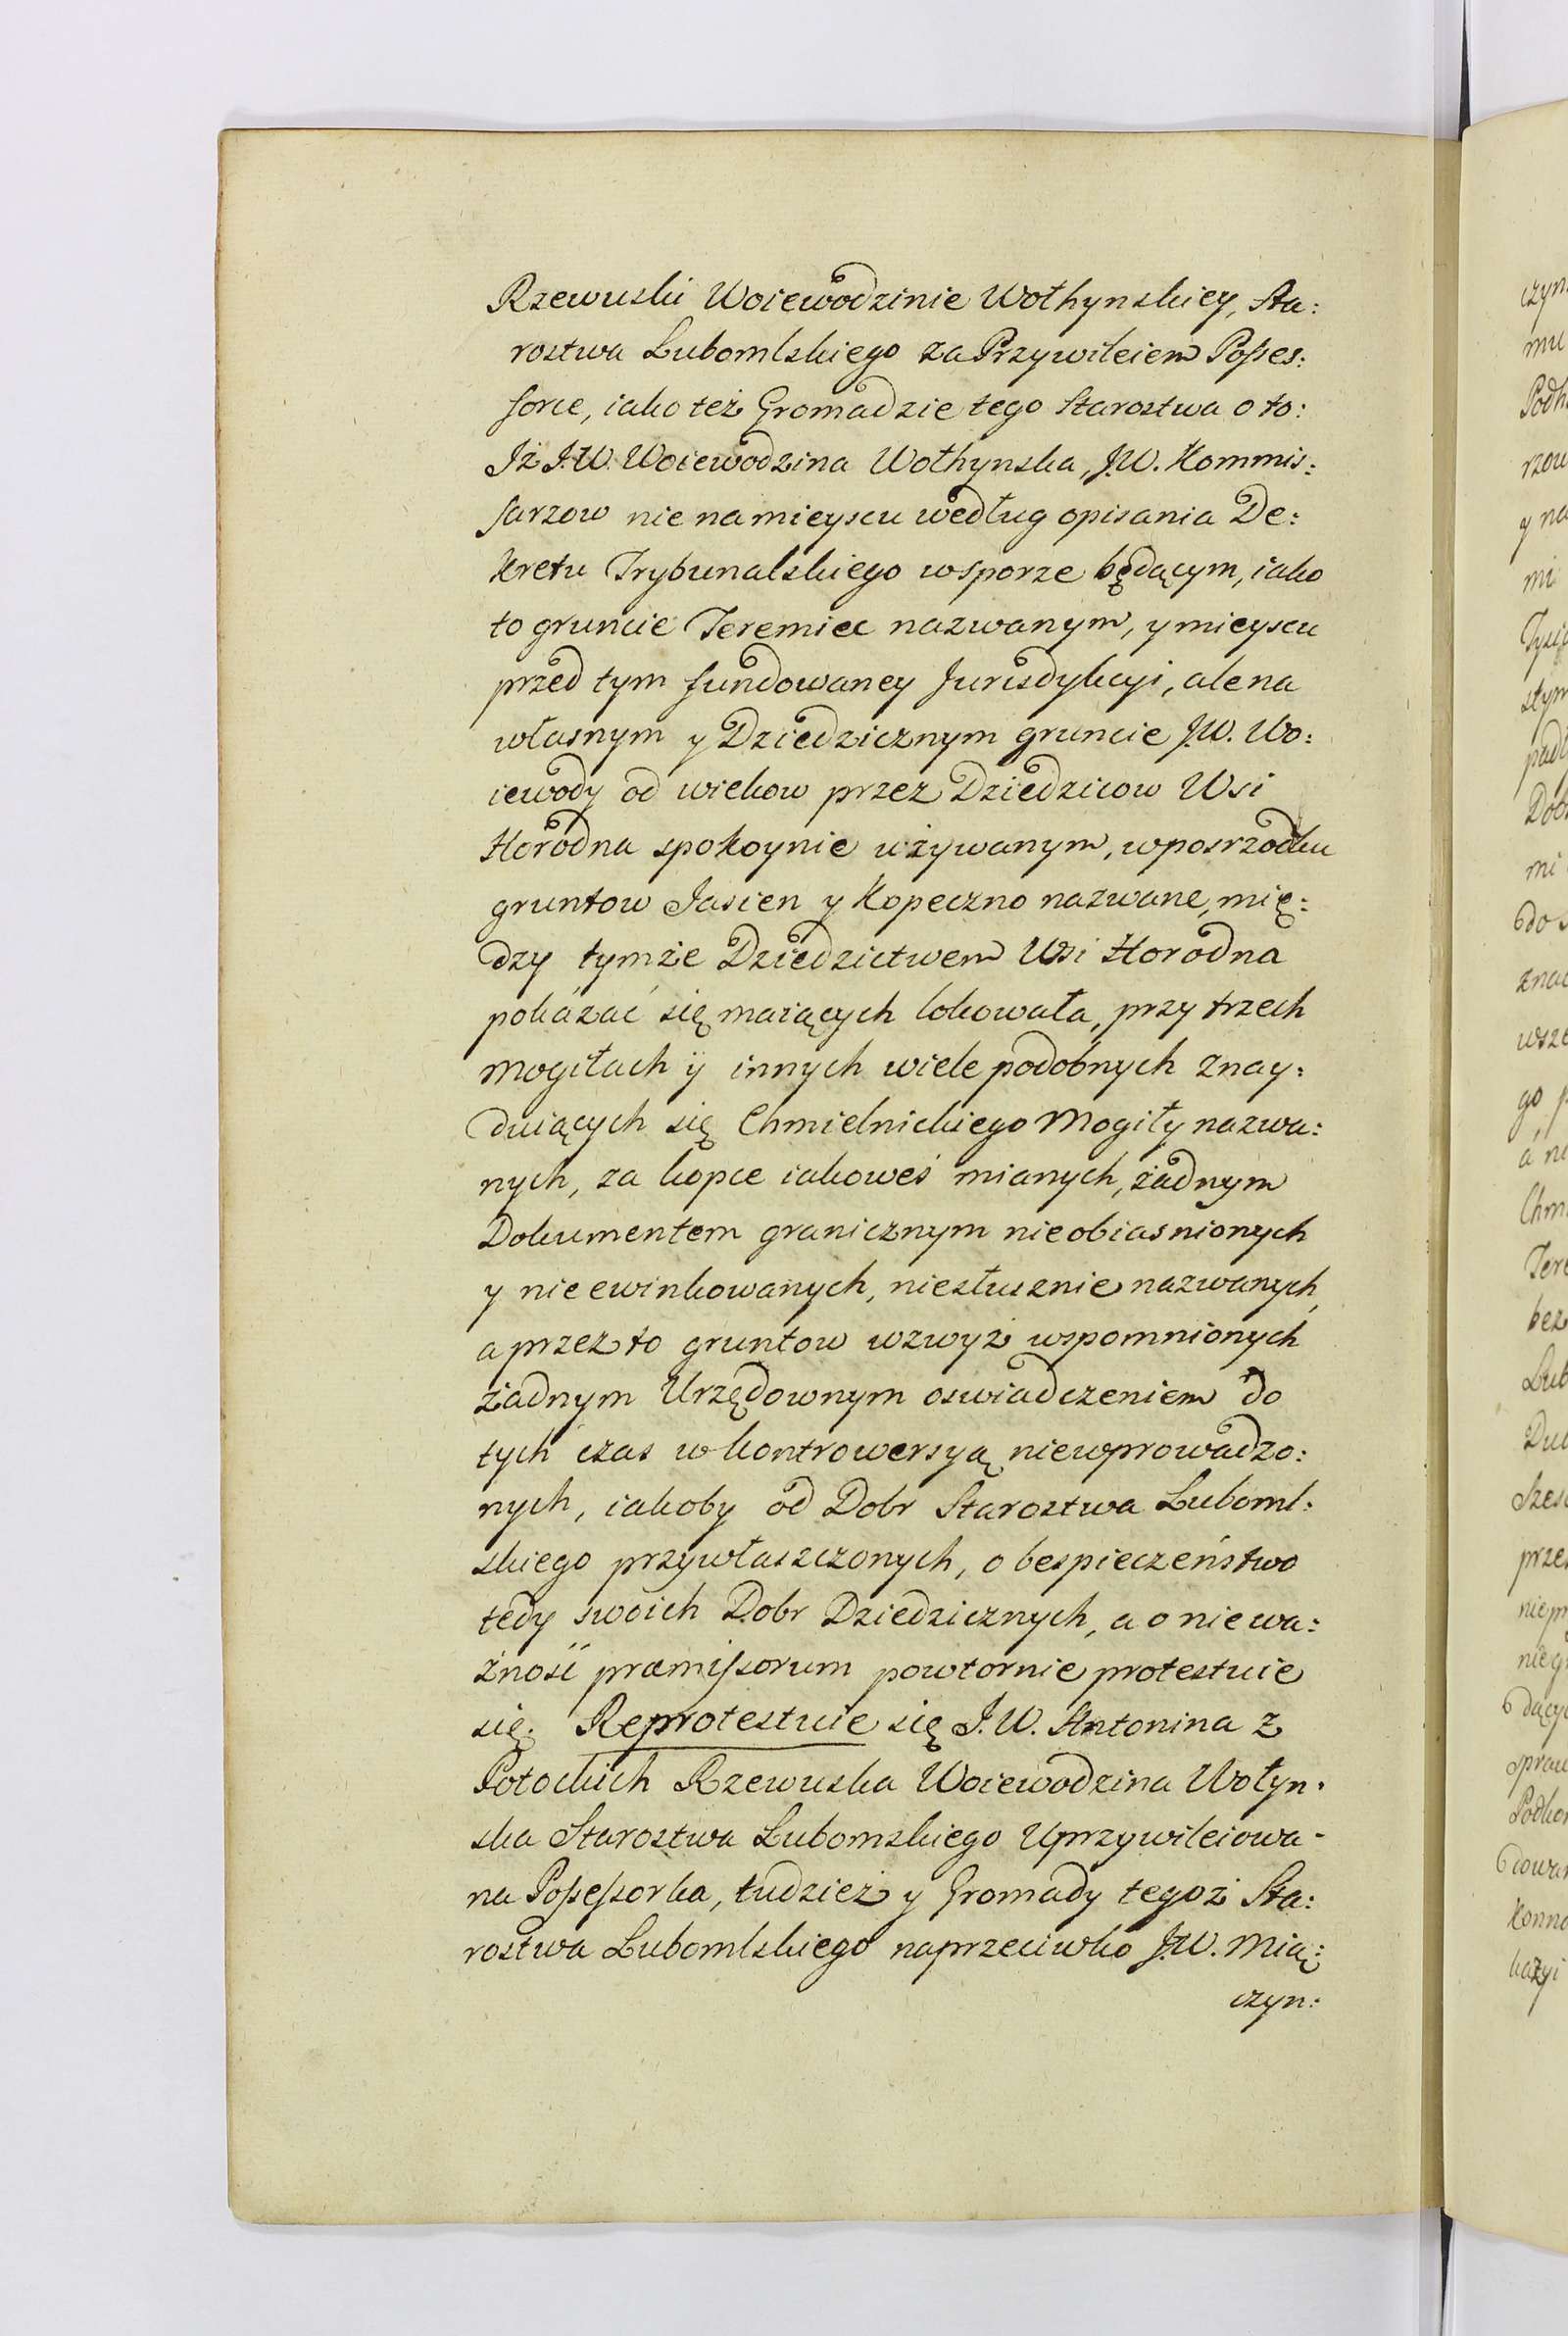 Rzewuski Woiewodzinie Wołhynskiey, Sta:
rostwa Lubomlskiego za Przywileiem Posses:
sorce, iako też Gromadzie tego Starostwa o to:
Iż J.W. Woiewodzina Wołhynska, J.W. Kommis:
sarzow nie na mieyscu według opisania De:
kretu Trybunalskiego w sporze będącym, iako
to gruncie Teremiec nazwanym, y mieyscu
przed tym fundowaney Jurisdykcyi, ale na
własnym y Dziedzicznym gruncie J.W. Wo:
iewody od wiekow przez Dziedzicow Wsi
Horodna spokoynie używanym, w posrzodku
gruntow Jasien y Kopeczno nazwane, mię:
dzy tymże Dziedzictwem Wsi Horodna
pokázać się maiących lokowała, przy trzech
Mogiłach ÿ innych wiele podobnych znay:
duiących się Chmielnickiego Mogiły nazwa:
nych, za kopce iakoweś mianych, żadnym
Dokumentem granicznym nieobiasnionych
y nie ewinkowanych, niesłusznie nazwanych,
a przez to gruntow wzwyż wspomnionych
żadnym Urzędownym oswiadczeniem do
tych czas w kontrowersyą niewprowadzo:
nych, iakoby od Dobr Starostwa Luboml:
skiego przywłaszczonych, o bespieczeństwo
tedy swoich Dobr Dziedzicznych, a o niewa:
żność præmissorum powtornie protestuie
się. Reprotestuie się J.W. Antonina z
Potockich Rzewuska Woiewodzina Wołyn:
ska Starostwa Lubomskiego Uprzywileiowa-
na Possessorka, tudzież y Gromady tegoż Sta:
rostwa Lubomlskiego naprzeciwko J.W. Mią:
czyn:
czyn
mu
rzow
y na
mi
mi
do s
go p
á ni
Chm
Tere
bez
Lub
Dub
prze
niep